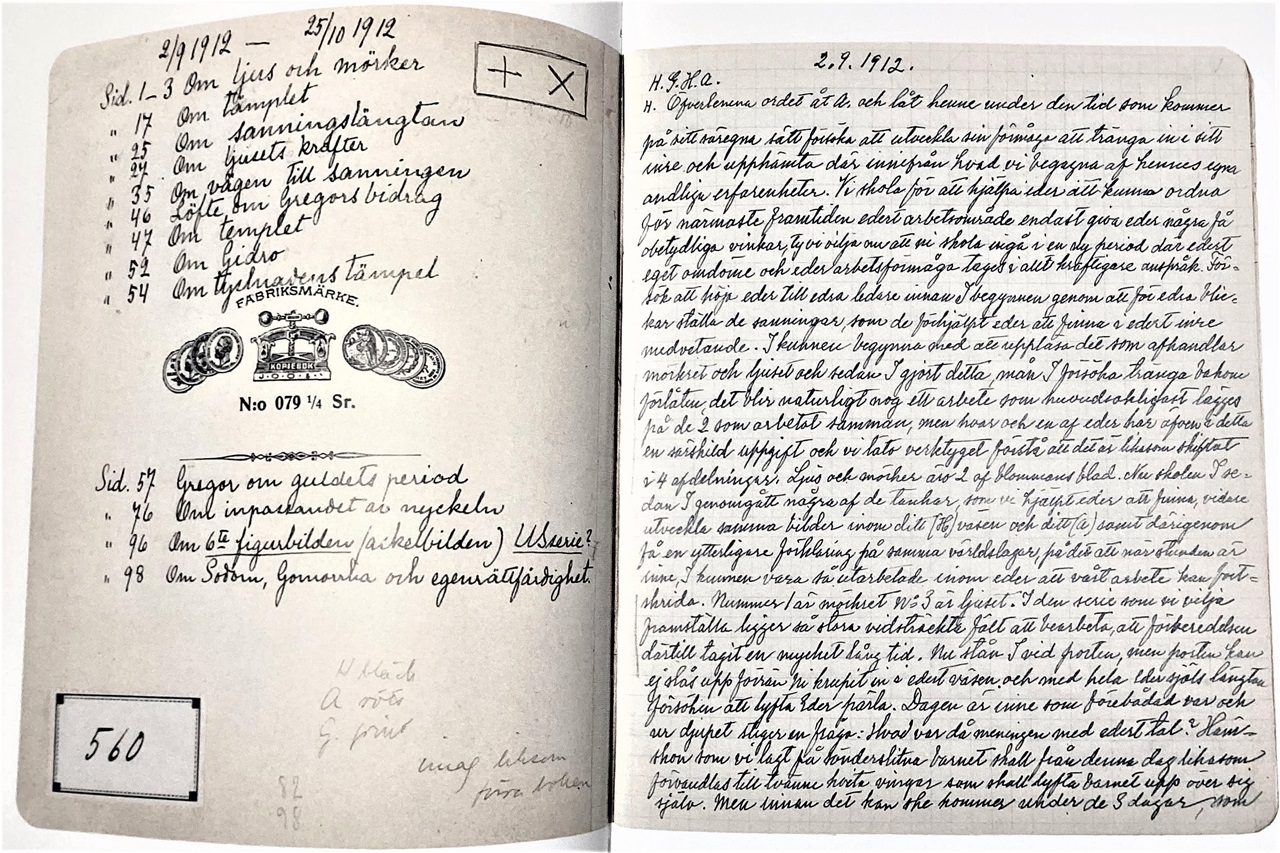 2/9 1912 — 25/10 1912
+ X
Sid. 1–3 Om ljus och mörker
" 17 Om tämplet
" 25 Om sanningslängtan
" 27 Om ljusets krafter
" 35 Om vägen till sanningen
" 46 Löfte om Gregors bidrag
" 47 Om templet
" 52 Om Gidro
" 54 Om tystnadens tämpel
FABRIKSMÄRKE.
KOPIEBOK
N:o 079 1/4 Sr.
Sid. 57 Gregor om guldets period
" 76 Om inpassandet av nyckeln
" 96 Om 6te figurbilden (askelbilden) US serie?
" 98 Om Sodom, Gomorrha och egenrättfärdighet.
H bläck
A röts
G.
560
87
98
2.9.1912.
H. G. H. A.
H. Öfverlemna ordet åt A. och låt henne under den tid som kommer
på sitt säregna sätt försöka att utveckla sin förmåga att tränga in i sitt
inre och upphämta där innifrån hvad vi begagna af hennes egna
andliga erfarenheter. Vi skola för att hjälpa eder att kunna ordna
för närmaste framtiden edert arbetsområde endast giva eder några få
obetydliga vinkar, ty vi vilja nu att ni skola ingå i en ny period där edert
eget omdöme och eder arbetsförmåga tages i allt kraftigare anspråk. För-
sök att höja eder till edra ledare innan I begynnen genom att för edra blic-
kar ställa de sanningar, som de förhjälpt eder att finna i edert inre
medvetande. I kunnen begynna med att uppläsa det som afhandlar
mörkret och ljuset och sedan I gjort detta, mån I försöka tränga bakom
förlåten, det blir naturligt nog ett arbete som huvudsakligast lägges
på de 2 som arbetat samman, men hvar och en af eder har äfven i detta
en särskild uppgift och vi låta verktyget förstå att det är liksom skiftat
i 4 afdelningar. Ljus och mörker äro 2 af blommans blad. Nu skolen I se-
dan I genomgått några af de tankar, som vi hjälpt eder att finna, vidare
utveckla samma bilder inom ditt (H) väsen och ditt (A) samt därigenom
få en ytterligare förklaring på samma världslagar, på det att när stunden är
inne, I kunnen vara så utarbetade inom eder att vårt arbete kan fort-
skrida. Nummer 1 är mörkret No 3 är ljuset. I den serie som vi vilja
framställa ligger så stora vidsträckta fält att bearbeta, att förberedelsen
därtill tagit en mycket lång tid. Nu stån I vid porten, men porten kan
ej slås upp förrän Ni krupit in i edert väsen och med hela eder själs längtan
försöken att lyfta Eder pärla. Dagen är inne som förebådad var och
ur djupet stiger en fråga: Hvad var då meningen med edert tal? Häm-
skon som vi lagt på sönderslitna barnet skall från denna dag liksom
förvandlas till tvänne hvita vingar som skall lyfta barnet upp över sig
själv. Men innan det kan ske kommer under de 3 dagar, som